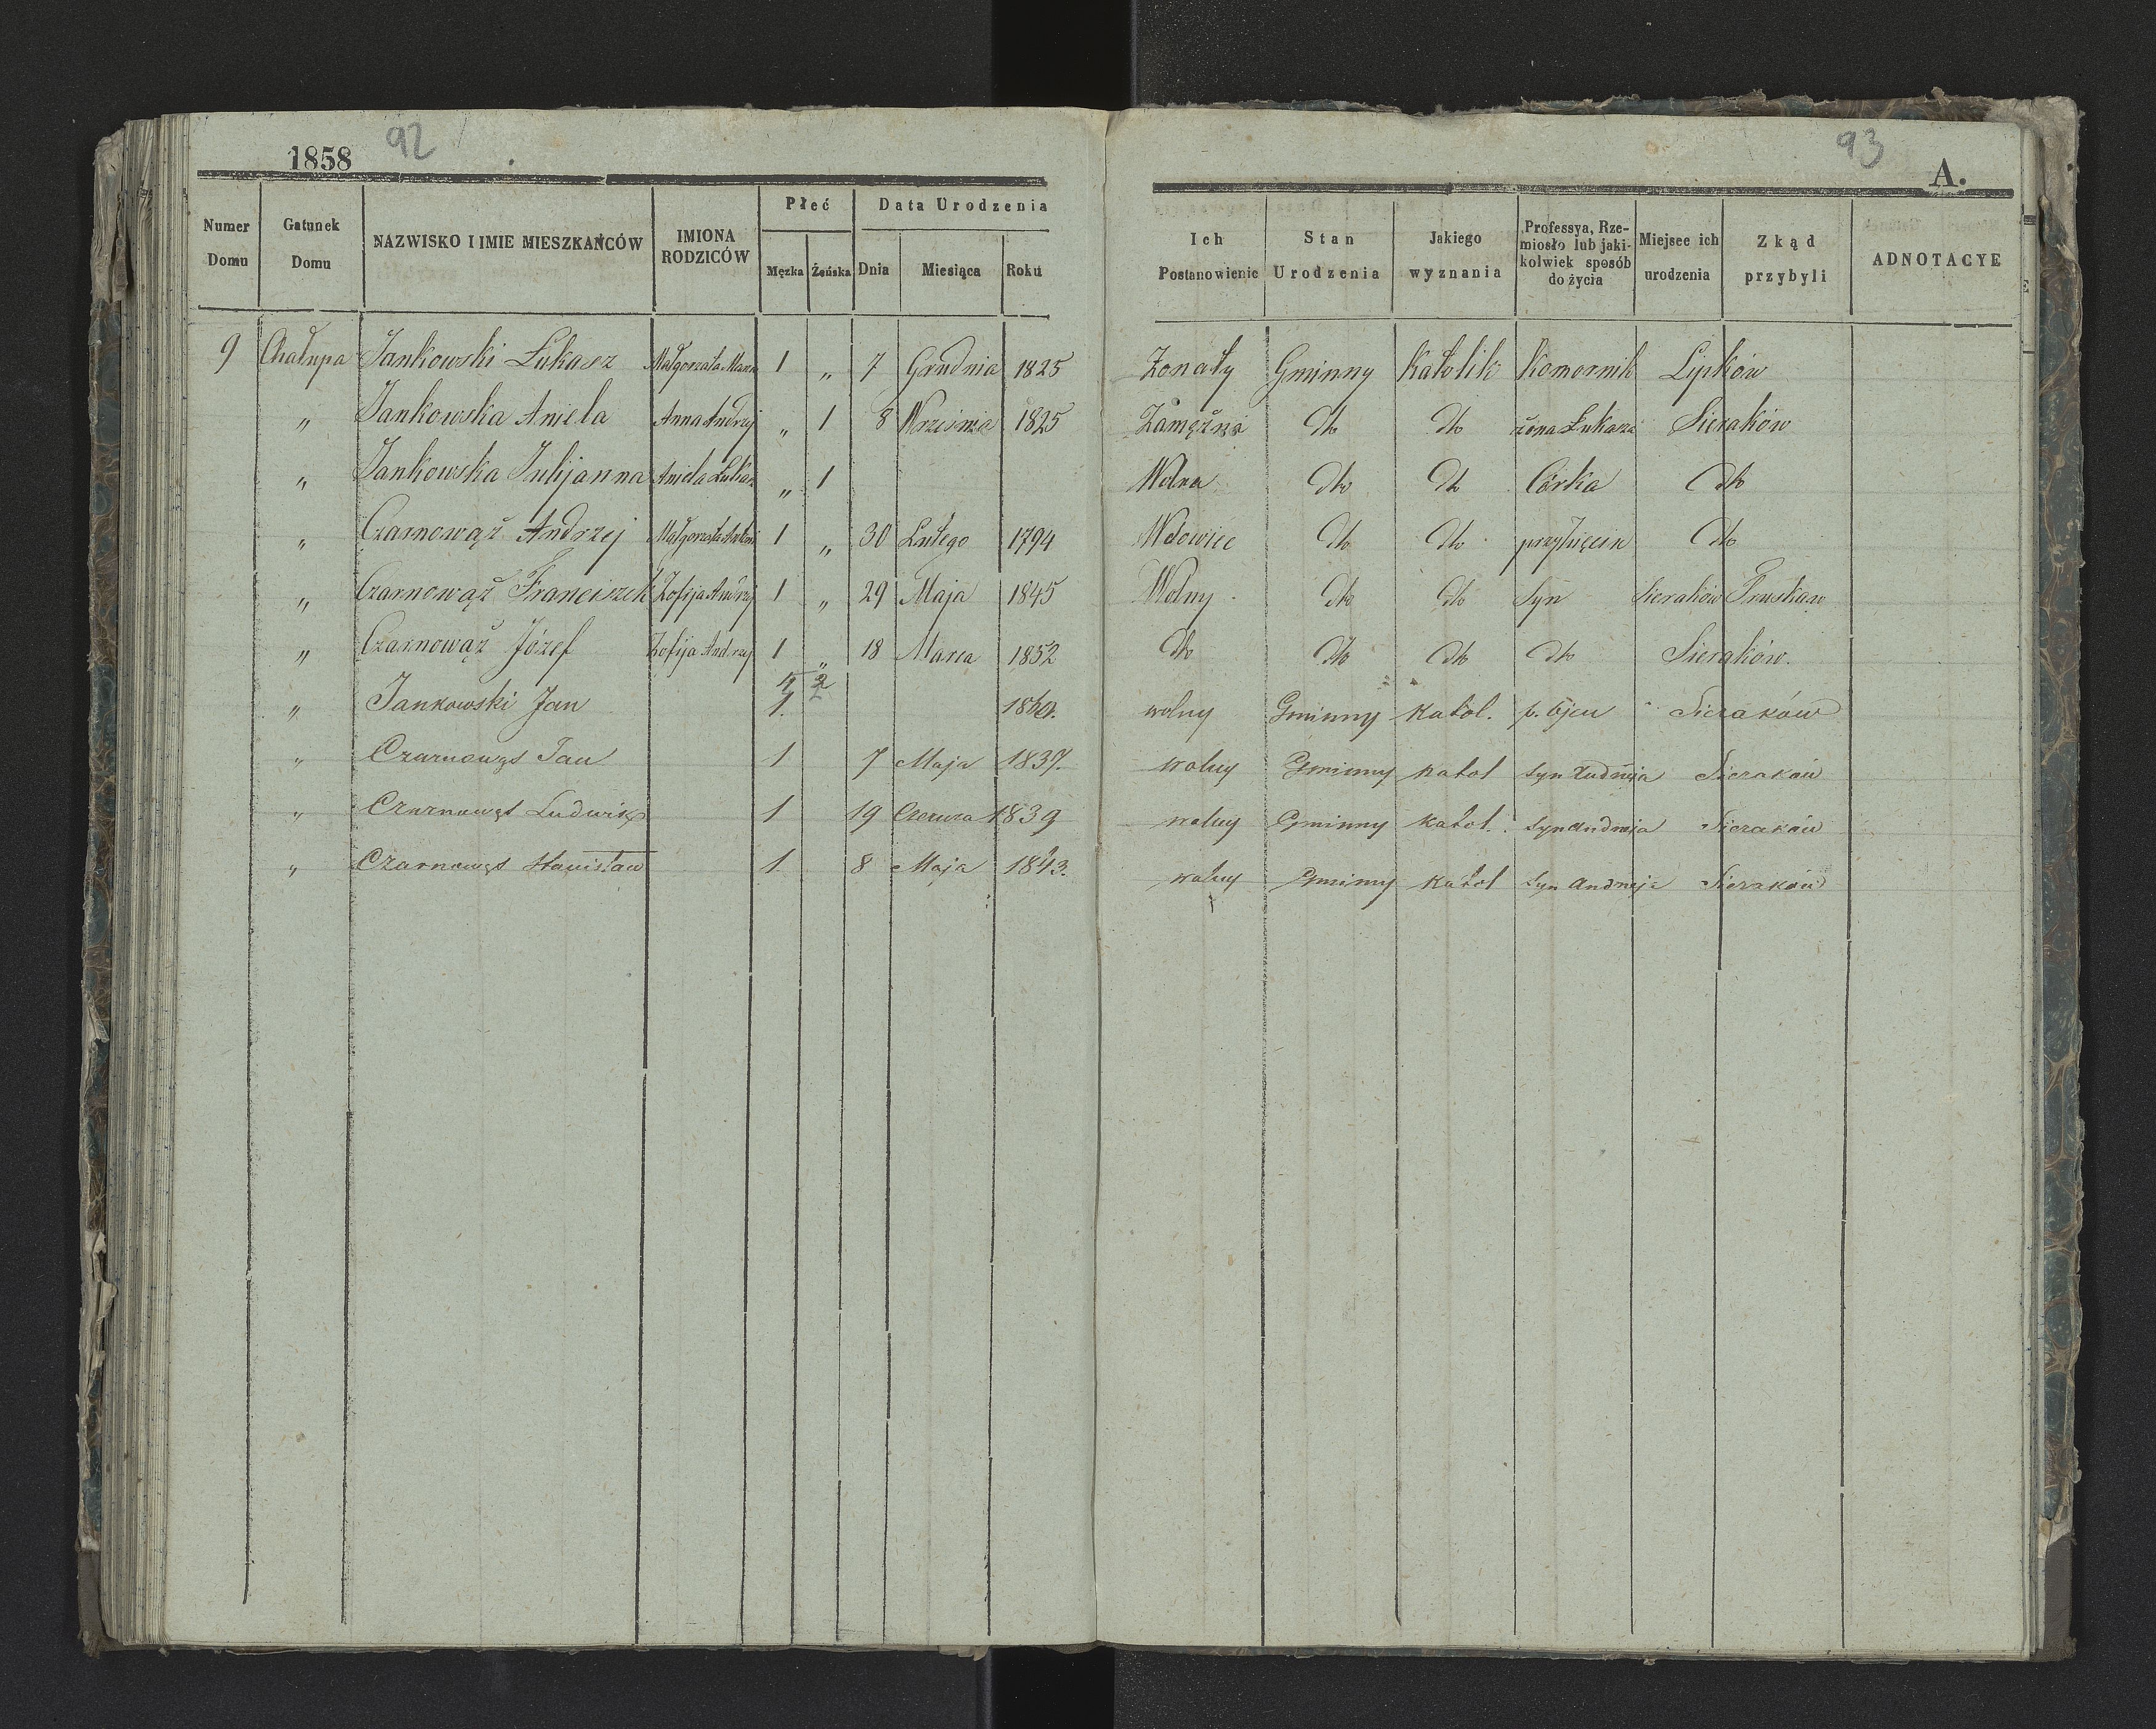 1858 92
Numer Domu Gatunek Domu NAZWISKO I IMIE MIESZKAŃCÓW IMIONA RODZICÓW Płeć Męzka Żeńska Data Urodzenia Dnia Miesiąca Roku
9 Chałupa Jankowski Łukasz Małgorzata 1 " 7 Grudnia 1825
" Jankowska Aniela Anna Andrzej " 1 8 Wrześnie 1825
" Jankowska Julijanna Aniela Łukasz " 1
" Czarnowąż Andrzej Małgorzata Antoni 1 " 30 Lutego 1794
" Czarnowąż Franciszek Zofija Andrzej 1 " 29 Maja 1845
" Czarnowąż Józef Zofija Andrzej 1 " 18 Marca 1852
2
" Jankowski Jan 1.
" Czarnowąs Jan 1 7 Maja 1837.
" Czarnowąs Ludwik 1 19 Czerwca 1839
" Czarnowąs Stanisław 1 8 Maja 1843.
93
A.
Ich Postanowienie Stan Urodzenia Jakiego wyznania Professya, Rzemiosło lub jakikolwiek sposób do życia Miejsce ich urodzenia Zkąd przybyli ADNOTACYE
Żonaty Gminny Katolik Komornik Lipków
Zamężna dto dto żona Łukasza Sieraków
Wolna dto dto Córka dto
Wdowiec dto dto dto
Wolny dto dto Syn Sieraków
dto dto dto dto Sieraków.
wolny Gminny Katol. p. Ojcu Sieraków
wolny Gminny Katol Syn Sieraków
wolny Gminny Katol. Syn Andrzeja Sieraków
wolny Gminny Katol Syn Andrzeja Sieraków